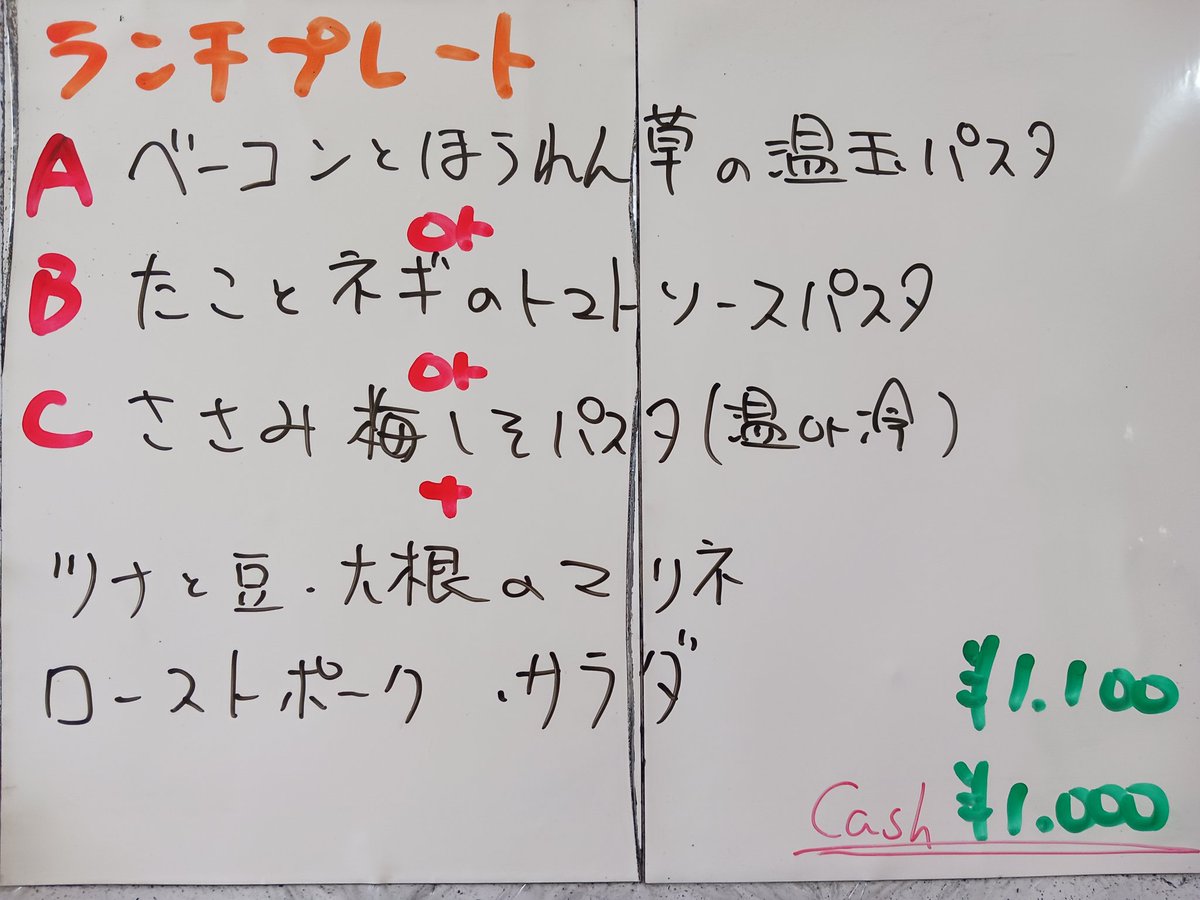 ランチプレート
A ベーコンとほうれん草の温玉パスタ
or
B たことネギのトマトソースパスタ
or
C ささみ梅しそパスタ(温or冷)
+
ツナと豆・大根のマリネ
ローストポーク ・サラダ
¥1.100
Cash ¥1.000